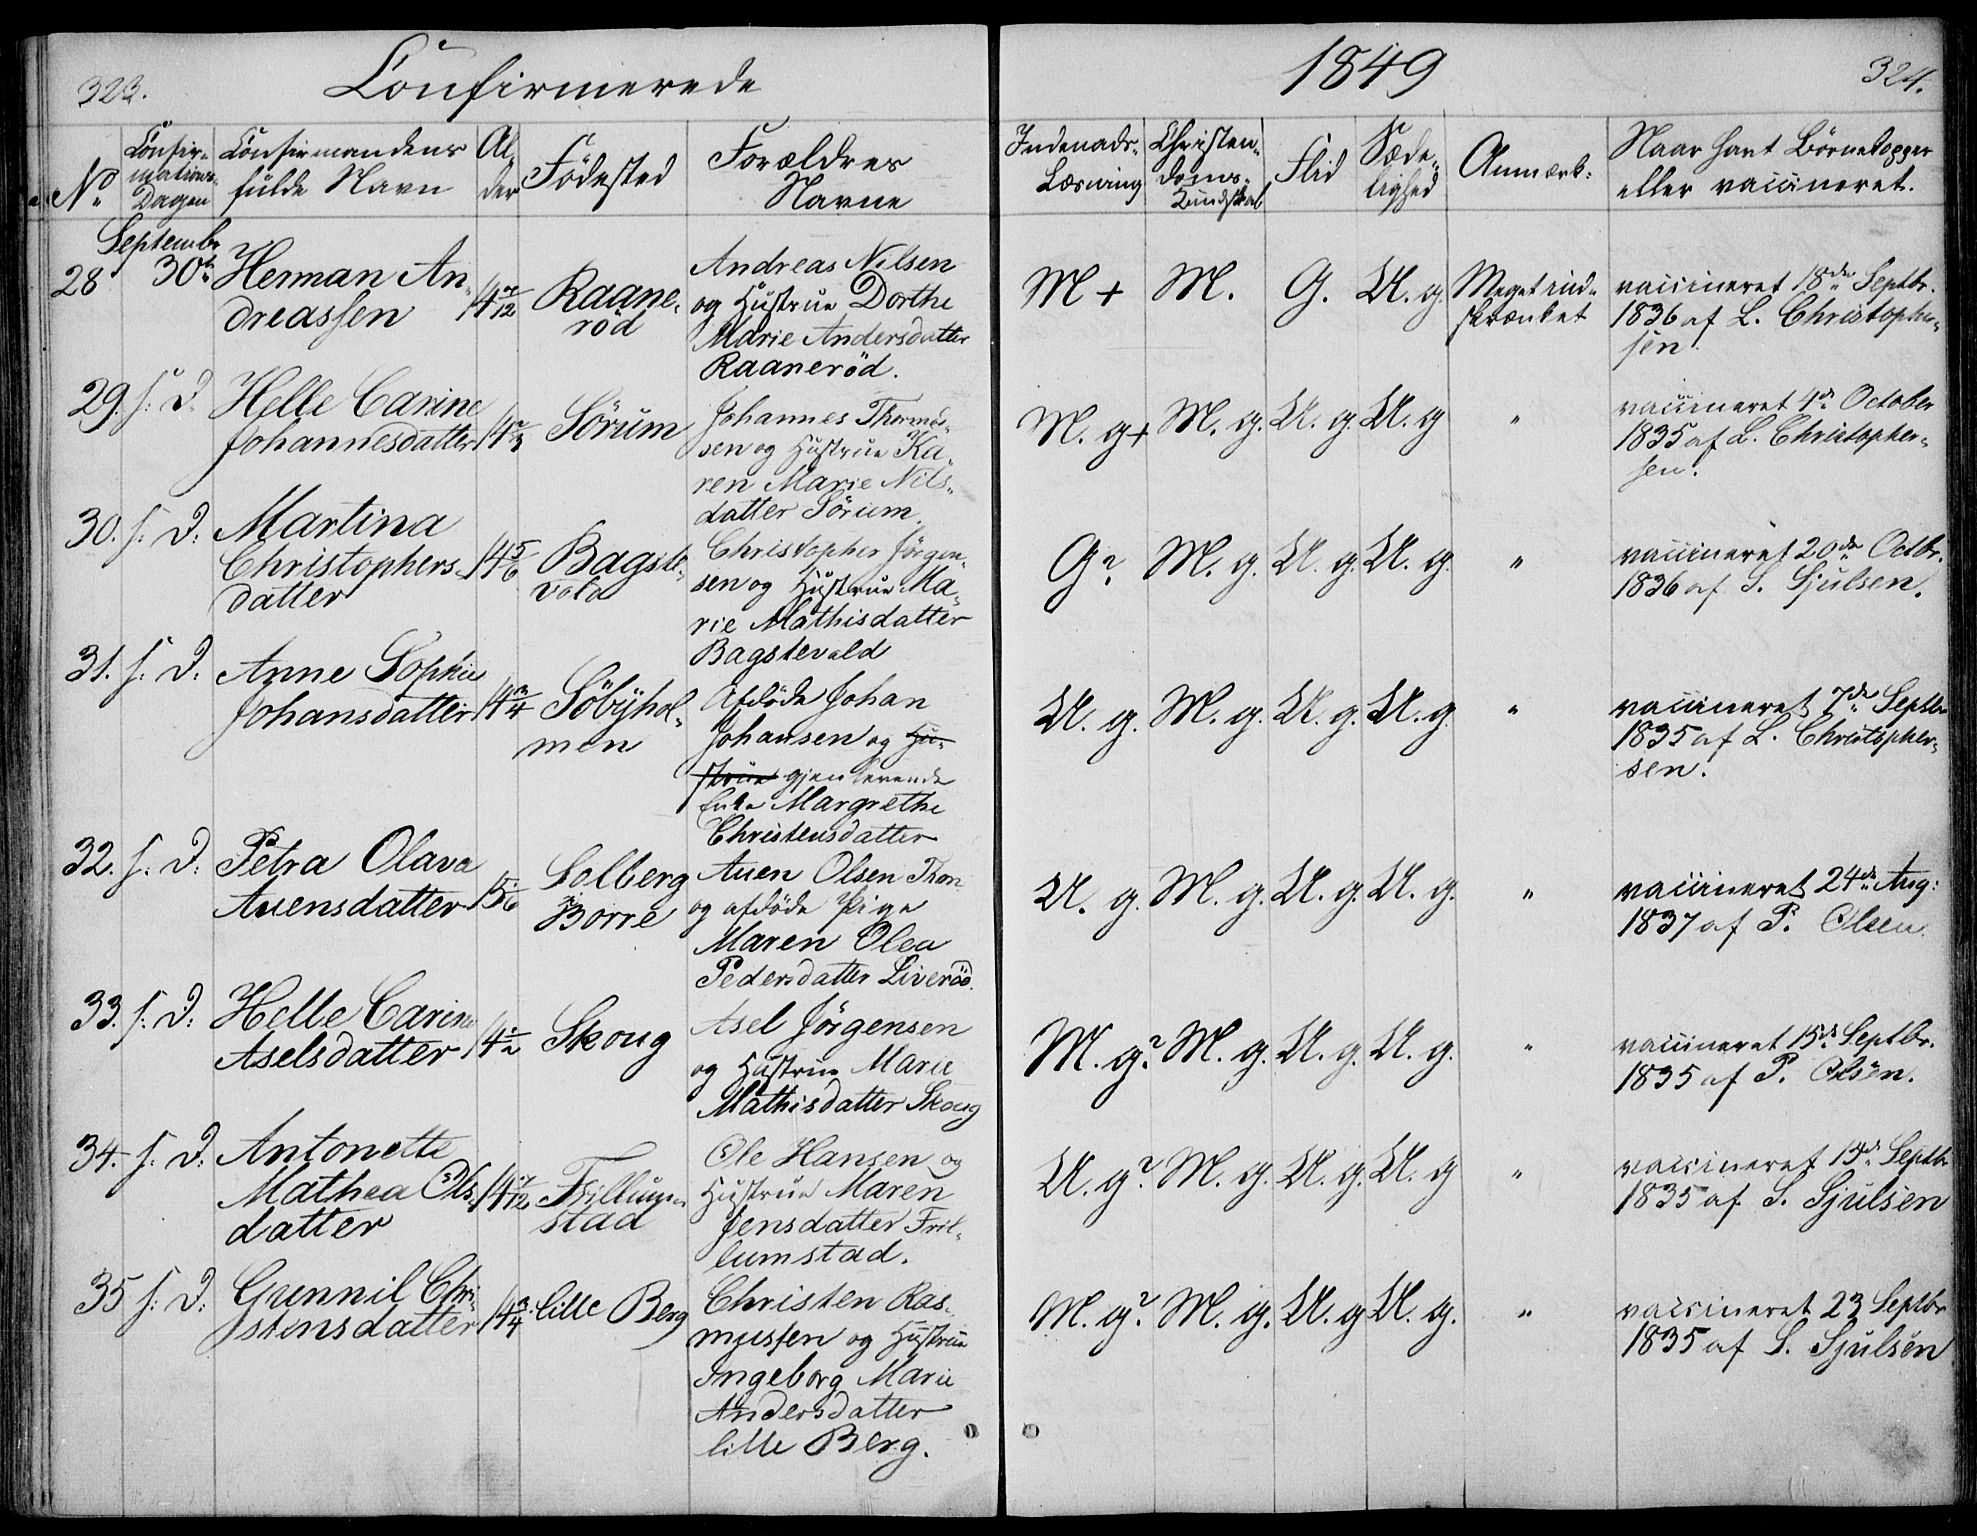 323.
Confirmerede
1849
324.
No
Confir-
mations-
Dagen
Confirmandens
fulde Navn
Al-
der
Födested
Forældres
Navne
Indenads-
Læsning
Christen-
doms-
Kundskab
Flid
Sæde-
lighed
Anmærk:
Naar havt Börnekopper
eller vaccineret.
Septembr
28 30te Herman An-
dreassen
14 7/12
Raane-
röd
Andreas Nilsen
og Hustrue Dorthe
Marie Andersdatter
Raaneröd.
M + M. G. U. g.
Meget ind-
skrænket
vaccineret 18de Septbr.
1836 af L. Christopher-
sen.
29. s. D. Helle Carine
Johannesdatter
14 2/3
Sörum
Johannes Thormo-
sen og Hustrue Ka-
ren Marie Nils-
datter Sörum.
M. g + M. g. U. g. U. g "
vaccineret 4de October
1835 af L. Christopher-
sen.
30. s. D. Martina
Christophers-
datter
14 5/6
Bagste-
vold
Christopher Jörgen-
sen og Hustrue Ma-
rie Mathisdatter
Bagstevold
G? M. g. U. g. U. g. "
vaccineret 20de Octbr.
1836 af S. Sjulsen.
31. s. D. Anne Sophie
Johansdatter
14 3/4
Söbyhol-
men
Afdöde Johan
Johansen og Hu-
strue gjenlevende
Enke Margrethe
Christensdatter
U. g. M. g. U. g. U. g. "
vaccineret 7de Septbr
1835 af L. Christopher-
sen.
32. s. D. Petra Olava
Auensdatter
15 1/6
Solberg
i Borre
Auen Olsen Thon
og afdöde Pige
Maren Olea
Pedersdatter Liveröd.
U. g. M. g. U. g. U. g. "
vaccineret 24de Aug:
1837 af P. Olsen.
33. s. D. Helle Carine
Aselsdatter
14 1/2
Skoug
Asel Jörgensen
og Hustrue Marie
Mathisdatter Skoug
M. g? M. g. U. g. U. g. "
vaccineret 15de Septbr.
1835 af P. Olsen.
34. s. D. Antonette
Mathea Ols-
datter
14 7/12
Frillum-
stad
Ole Hansen og
Hustrue Maren
Jensdatter Fril-
lumstad.
U. g? M. g. U. g. U. g "
vaccineret 15de Septbr
1835 af S. Sjulsen
35 s. D. Gunnil Chri-
stensdatter
14 3/4
lille Berg
Christen Ras-
mussen og Hustrue
Ingeborg Marie
Andersdatter
lille Berg.
M. g? M. g. U. g U. g. "
vaccineret 23 Septbr
1835 af S. Sjulsen